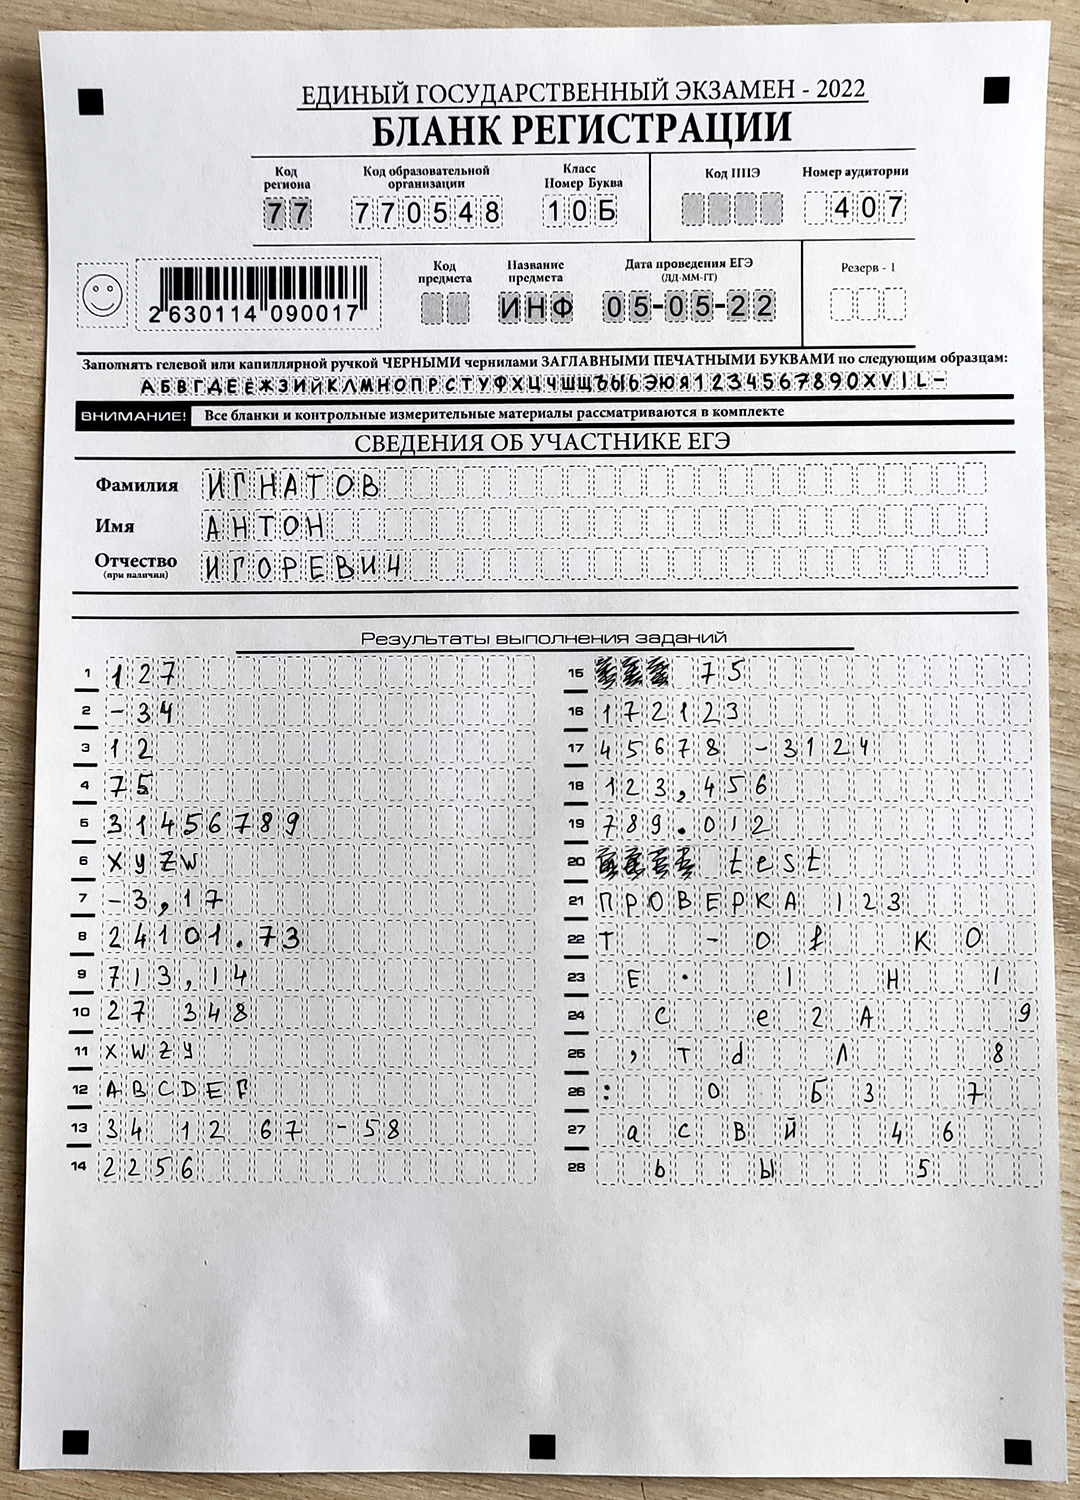 ЕДИНЫЙ ГОСУДАРСТВЕННЫЙ ЭКЗАМЕН - 2022
БЛАНК РЕГИСТРАЦИИ
Код региона
77
Код образовательной организации
770548
Класс
Номер Буква
10Б
Код ППЭ
Номер аудитории
407
2630114 090017
Код предмета
Название предмета
ИНФ
Дата проведения ЕГЭ
(ДД-ММ-ГГ)
05-05-22
Резерв - 1
Заполнять гелевой или капиллярной ручкой ЧЕРНЫМИ чернилами ЗАГЛАВНЫМИ ПЕЧАТНЫМИ БУКВАМИ по следующим образцам:
АБВГДЕЁЖЗИЙКЛМНОПРСТУФХЦЧШЩЪЫЬЭЮЯ1234567890XVIL-
ВНИМАНИЕ! Все бланки и контрольные измерительные материалы рассматриваются в комплекте
СВЕДЕНИЯ ОБ УЧАСТНИКЕ ЕГЭ
Фамилия ИГНАТОВ
Имя АНТОН
Отчество ИГОРЕВИЧ
(при наличии)
Результаты выполнения заданий
1 127
2 -34
3 12
4 75
5 31456789
6 xyzw
7 -3,17
8 24101.73
9 713,14
10 27 348
11 XWZY
12 ABCDEF
13 34 12 67 -58
14 2256
15 75
16 172123
17 45678 -3124
18 123,456
19 789.012
20 test
21 ПРОВЕРКА 123
22 Т - О f К О
23 Е . 1 Н 1
24 С е 2 А 9
25 , т d Л 8
26 : О Б 3 7
27 а с В Й 4 6
28 ь Ы 5